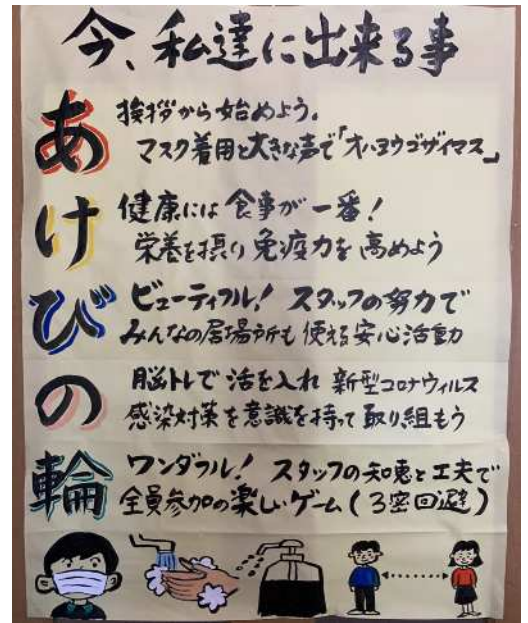 今、私達に出来る事
あ 挨拶から始めよう。
マスク着用と大きな声で「オハヨウゴザイマス」
け 健康には食事が一番!
栄養を摂り免疫力を高めよう
び ビューティフル! スタッフの努力で
みんなの居場所も使える安心活動
の 脳トレで活を入れ 新型コロナウィルス
感染対策を意識を持って取り組もう
輪 ワンダフル! スタッフの知恵と工夫で
全員参加の楽しいゲーム(3密回避)